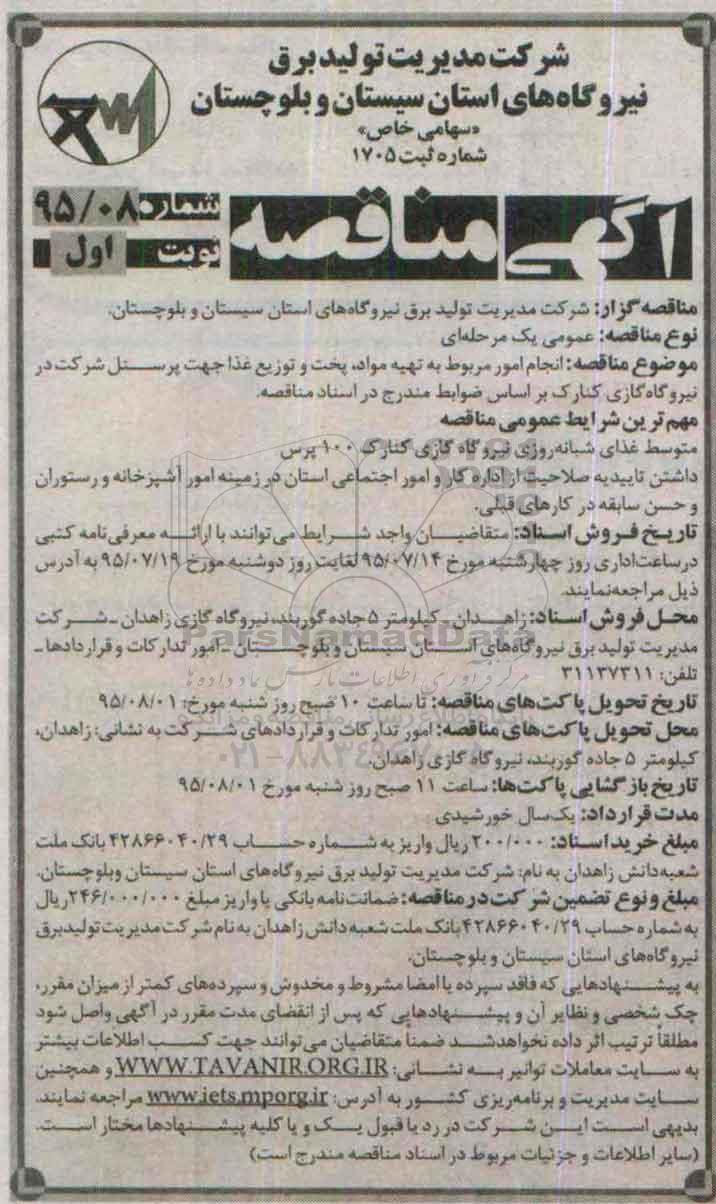 شرکت مدیریت تولید برق
نیروگاه‌های استان سیستان و بلوچستان
«سهامی خاص»
شماره ثبت ۱۷۰۵
آگهی مناقصه
شماره ۹۵/۰۸
نوبت اول
مناقصه گزار: شرکت مدیریت تولید برق نیروگاه‌های استان سیستان و بلوچستان.
نوع مناقصه: عمومی یک مرحله‌ای
موضوع مناقصه: انجام امور مربوط به تهیه مواد، پخت و توزیع غذا جهت پرسنل شرکت در
نیروگاه گازی کنارک بر اساس ضوابط مندرج در اسناد مناقصه.
مهم ترین شرایط عمومی مناقصه
متوسط غذای شبانه‌روزی نیروگاه گازی کنارک ۱۰۰ پرس
داشتن تاییدیه صلاحیت از اداره کار و امور اجتماعی استان در زمینه امور آشپزخانه و رستوران
و حسن سابقه در کارهای قبلی.
تاریخ فروش اسناد: متقاضیان واجد شرایط می‌توانند با ارائه معرفی‌نامه کتبی
در ساعت اداری روز چهارشنبه مورخ ۹۵/۰۷/۱۴ لغایت روز دوشنبه مورخ ۹۵/۰۷/۱۹ به آدرس
ذیل مراجعه نمایند.
محل فروش اسناد: زاهدان ـ کیلومتر ۵ جاده گوربند، نیروگاه گازی زاهدان ـ شرکت
مدیریت تولید برق نیروگاه‌های استان سیستان و بلوچستان ـ امور تدارکات و قراردادها ـ
تلفن: ۳۱۱۳۷۳۱۱
تاریخ تحویل پاکت‌های مناقصه: تا ساعت ۱۰ صبح روز شنبه مورخ: ۹۵/۰۸/۰۱
محل تحویل پاکت‌های مناقصه: امور تدارکات و قراردادهای شرکت به نشانی: زاهدان،
کیلومتر ۵ جاده گوربند، نیروگاه گازی زاهدان.
تاریخ بازگشایی پاکت‌ها: ساعت ۱۱ صبح روز شنبه مورخ ۹۵/۰۸/۰۱
مدت قرارداد: یک‌سال خورشیدی
مبلغ خرید اسناد: ۲۰۰/۰۰۰ ریال واریز به شماره حساب ۴۲۸۶۶۰۴۰/۲۹ بانک ملت
شعبه دانش زاهدان به نام: شرکت مدیریت تولید برق نیروگاه‌های استان سیستان وبلوچستان.
مبلغ و نوع تضمین شرکت در مناقصه: ضمانت‌نامه بانکی یا واریز مبلغ ۲۴۶/۰۰۰/۰۰۰ ریال
به شماره حساب ۴۲۸۶۶۰۴۰/۲۹ بانک ملت شعبه دانش زاهدان به نام شرکت مدیریت تولید برق
نیروگاه‌های استان سیستان و بلوچستان.
به پیشنهادهایی که فاقد سپرده یا امضا مشروط و مخدوش و سپرده‌های کمتر از میزان مقرر،
چک شخصی و نظایر آن و پیشنهادهایی که پس از انقضای مدت مقرر در آگهی واصل شود
مطلقاً ترتیب اثر داده نخواهد شد ضمناً متقاضیان می‌توانند جهت کسب اطلاعات بیشتر
به سایت معاملات توانیر به نشانی: WWW.TAVANIR.ORG.IR و همچنین
سایت مدیریت و برنامه‌ریزی کشور به آدرس: www.iets.mporg.ir مراجعه نمایند.
بدیهی است این شرکت در رد یا قبول یک و یا کلیه پیشنهادها مختار است.
(سایر اطلاعات و جزئیات مربوط در اسناد مناقصه مندرج است)
ParsNamadData
مرکز فرآوری اطلاعات پارس نماد داده‌ها
۰۲۱-۸۸۳۴۹۶۷۰